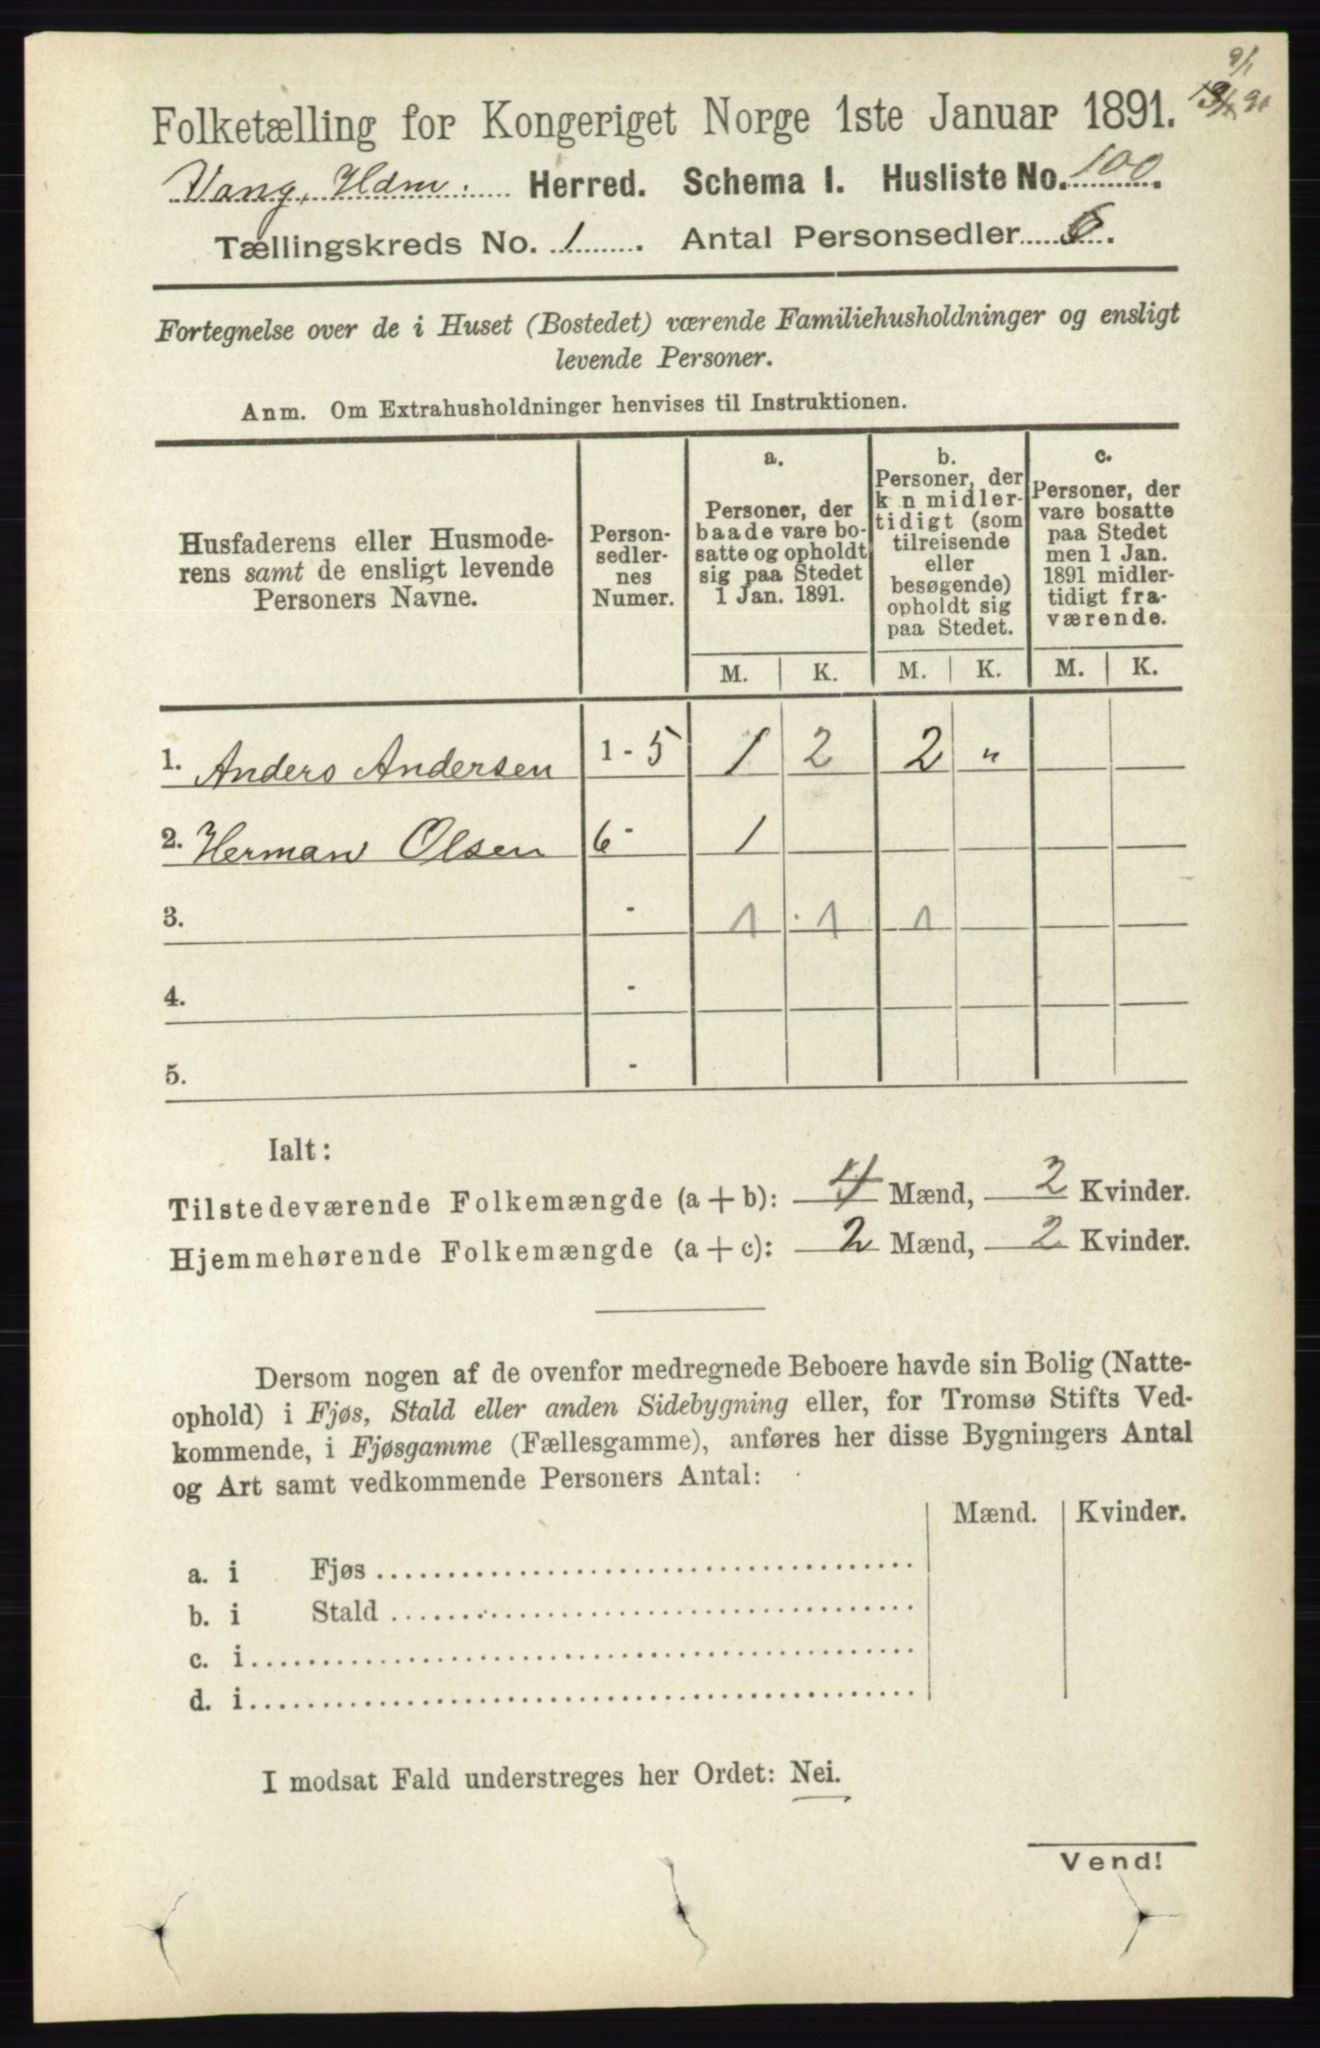 Folketælling for Kongeriget Norge 1ste Januar 1891.
Vang, Hdm. Herred. Schema I. Husliste No. 100.
Tællingskreds No. 1. Antal Personsedler 6.
Fortegnelse over de i Huset (Bostedet) værende Familiehusholdninger og ensligt
levende Personer.
Anm. Om Extrahusholdninger henvises til Instruktionen.
Husfaderens eller Husmode-
rens samt de ensligt levende
Personers Navne.
Person-
sedler-
nes
Numer.
a.
Personer, der
baade vare bo-
satte og opholdt
sig paa Stedet
1 Jan. 1891.
b.
Personer, der
k n midler-
tidigt (som
tilreisende
eller
besøgende)
opholdt sig
paa Stedet.
c.
Personer, der
vare bosatte
paa Stedet
men 1 Jan.
1891 midler-
tidigt fra-
værende.
M. K. M. K. M. K.
1. Anders Andersen 1 - 5 1 2 2 "
2. Herman Olsen 6 - 1
3. - 1 1 1
4. -
5. -
Ialt:
Tilstedeværende Folkemængde (a + b): 4 Mænd, 2 Kvinder.
Hjemmehørende Folkemængde (a + c): 2 Mænd, 2 Kvinder.
Dersom nogen af de ovenfor medregnede Beboere havde sin Bolig (Natte-
ophold) i Fjøs, Stald eller anden Sidebygning eller, for Tromsø Stifts Ved-
kommende, i Fjøsgamme (Fællesgamme), anføres her disse Bygningers Antal
og Art samt vedkommende Personers Antal:
Mænd. Kvinder.
a. i Fjøs
b. i Stald
c. i
d. i
I modsat Fald understreges her Ordet: Nei.
Vend!